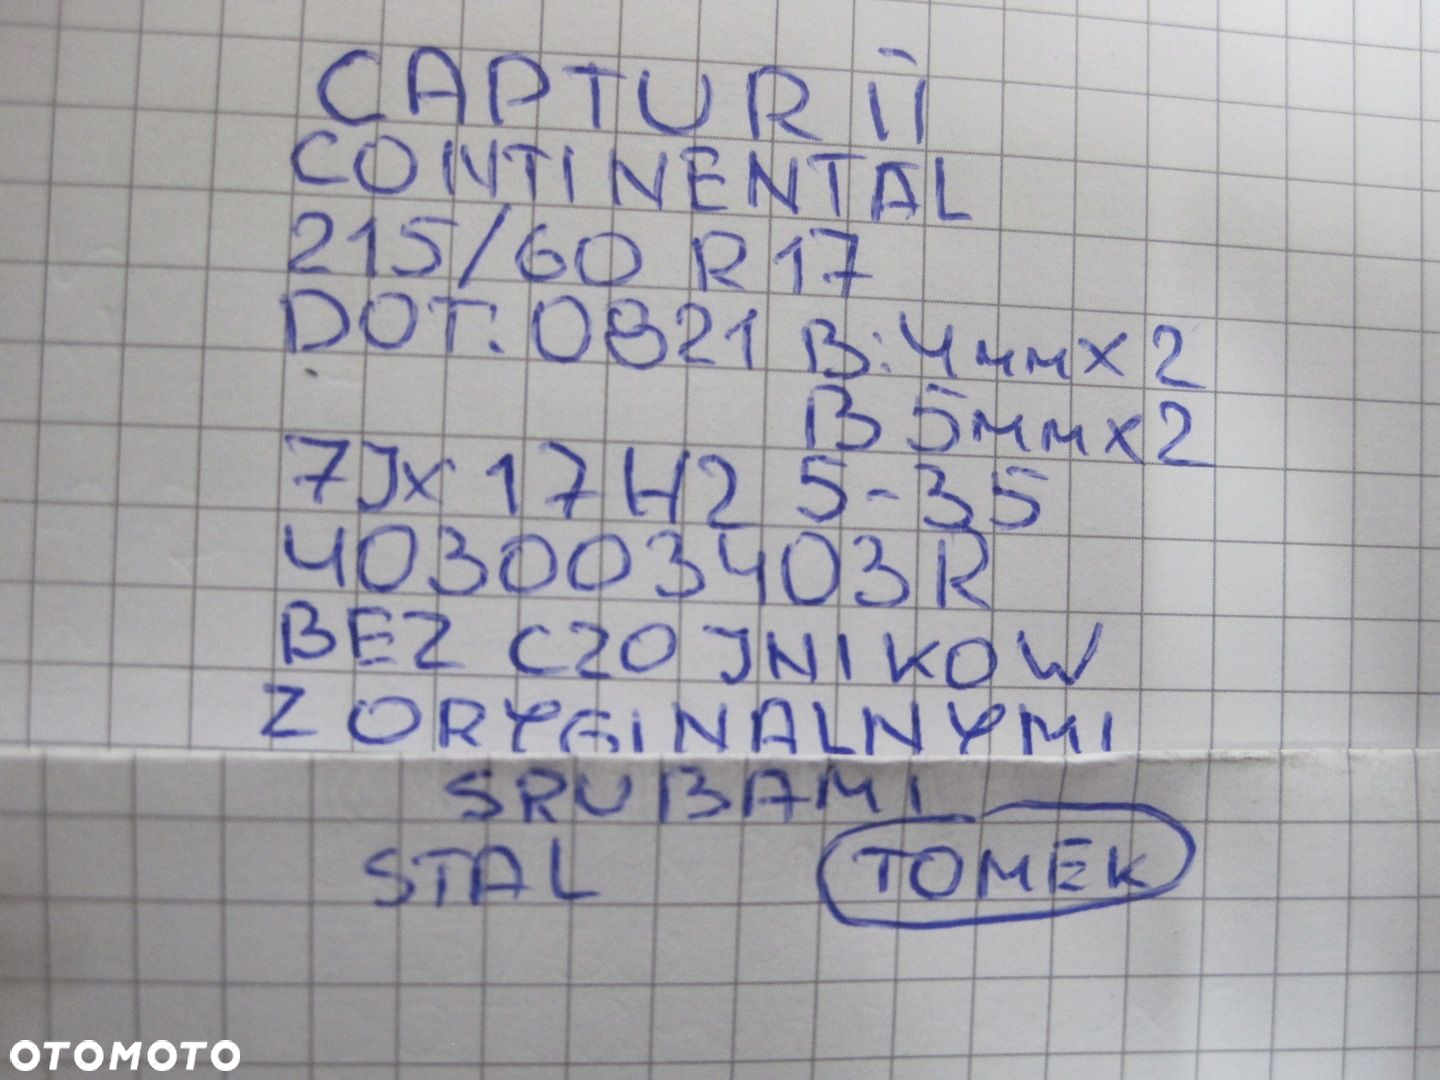 CAPTUR II
CONTINENTAL
215/60 R17
DOT. 0821 B: 4mm x 2
B 5mm x 2
7Jx17H2 5-35
403003403R
BEZ CZOJNIKOW
Z ORYGINALNYMI
SRUBAMI
STAL TOMEK
OTOMOTO